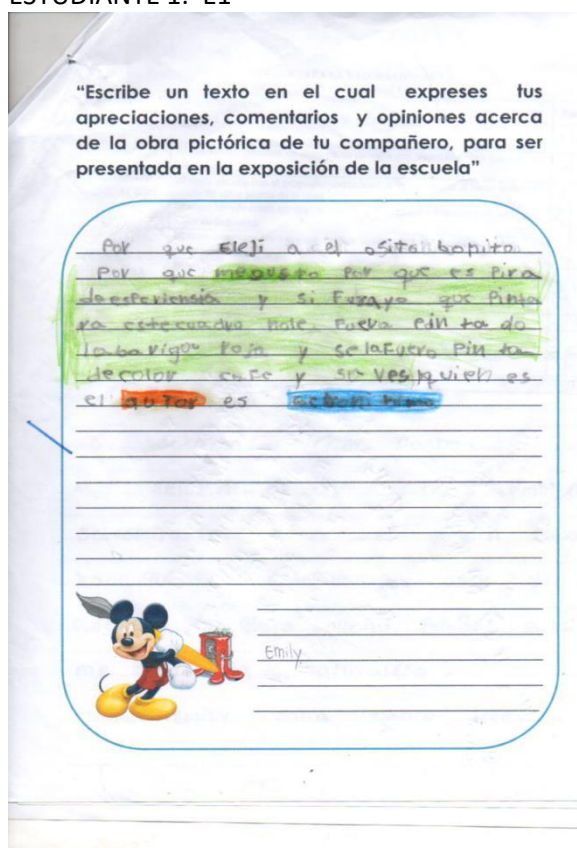 ESTUDIANTE 1: E1
“Escribe un texto en el cual expreses tus
apreciaciones, comentarios y opiniones acerca
de la obra pictórica de tu compañero, para ser
presentada en la exposición de la escuela”
Por que Eleji a el ositon bonito
Por que megusto Por que es Pira
deesperiensia y si Fuzayo que Pinta
ra estecuadro nole Fuera Pin ta do
labarigoo Roja y selaFuero Pin ta
decolor cafe y si ves quien es
el autor es
Emily